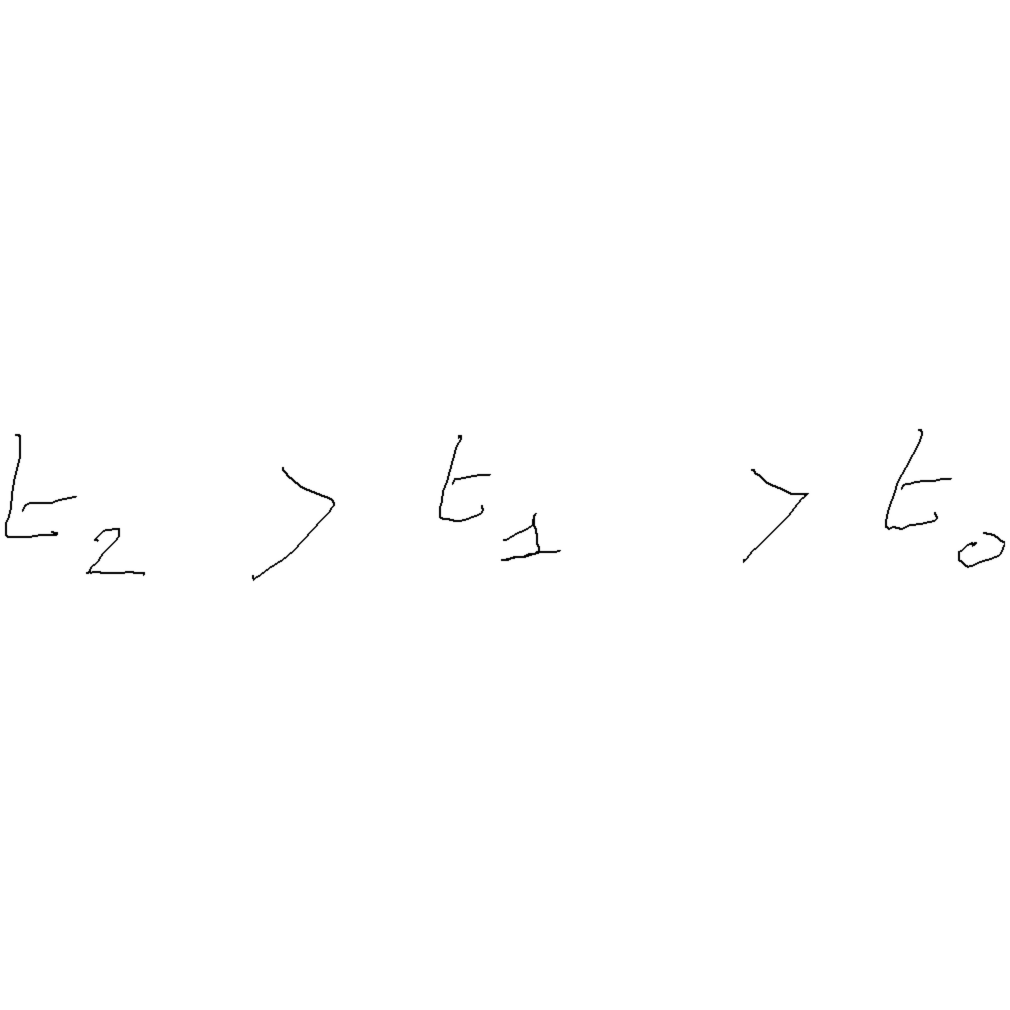 t₂ > t₁ > t₀